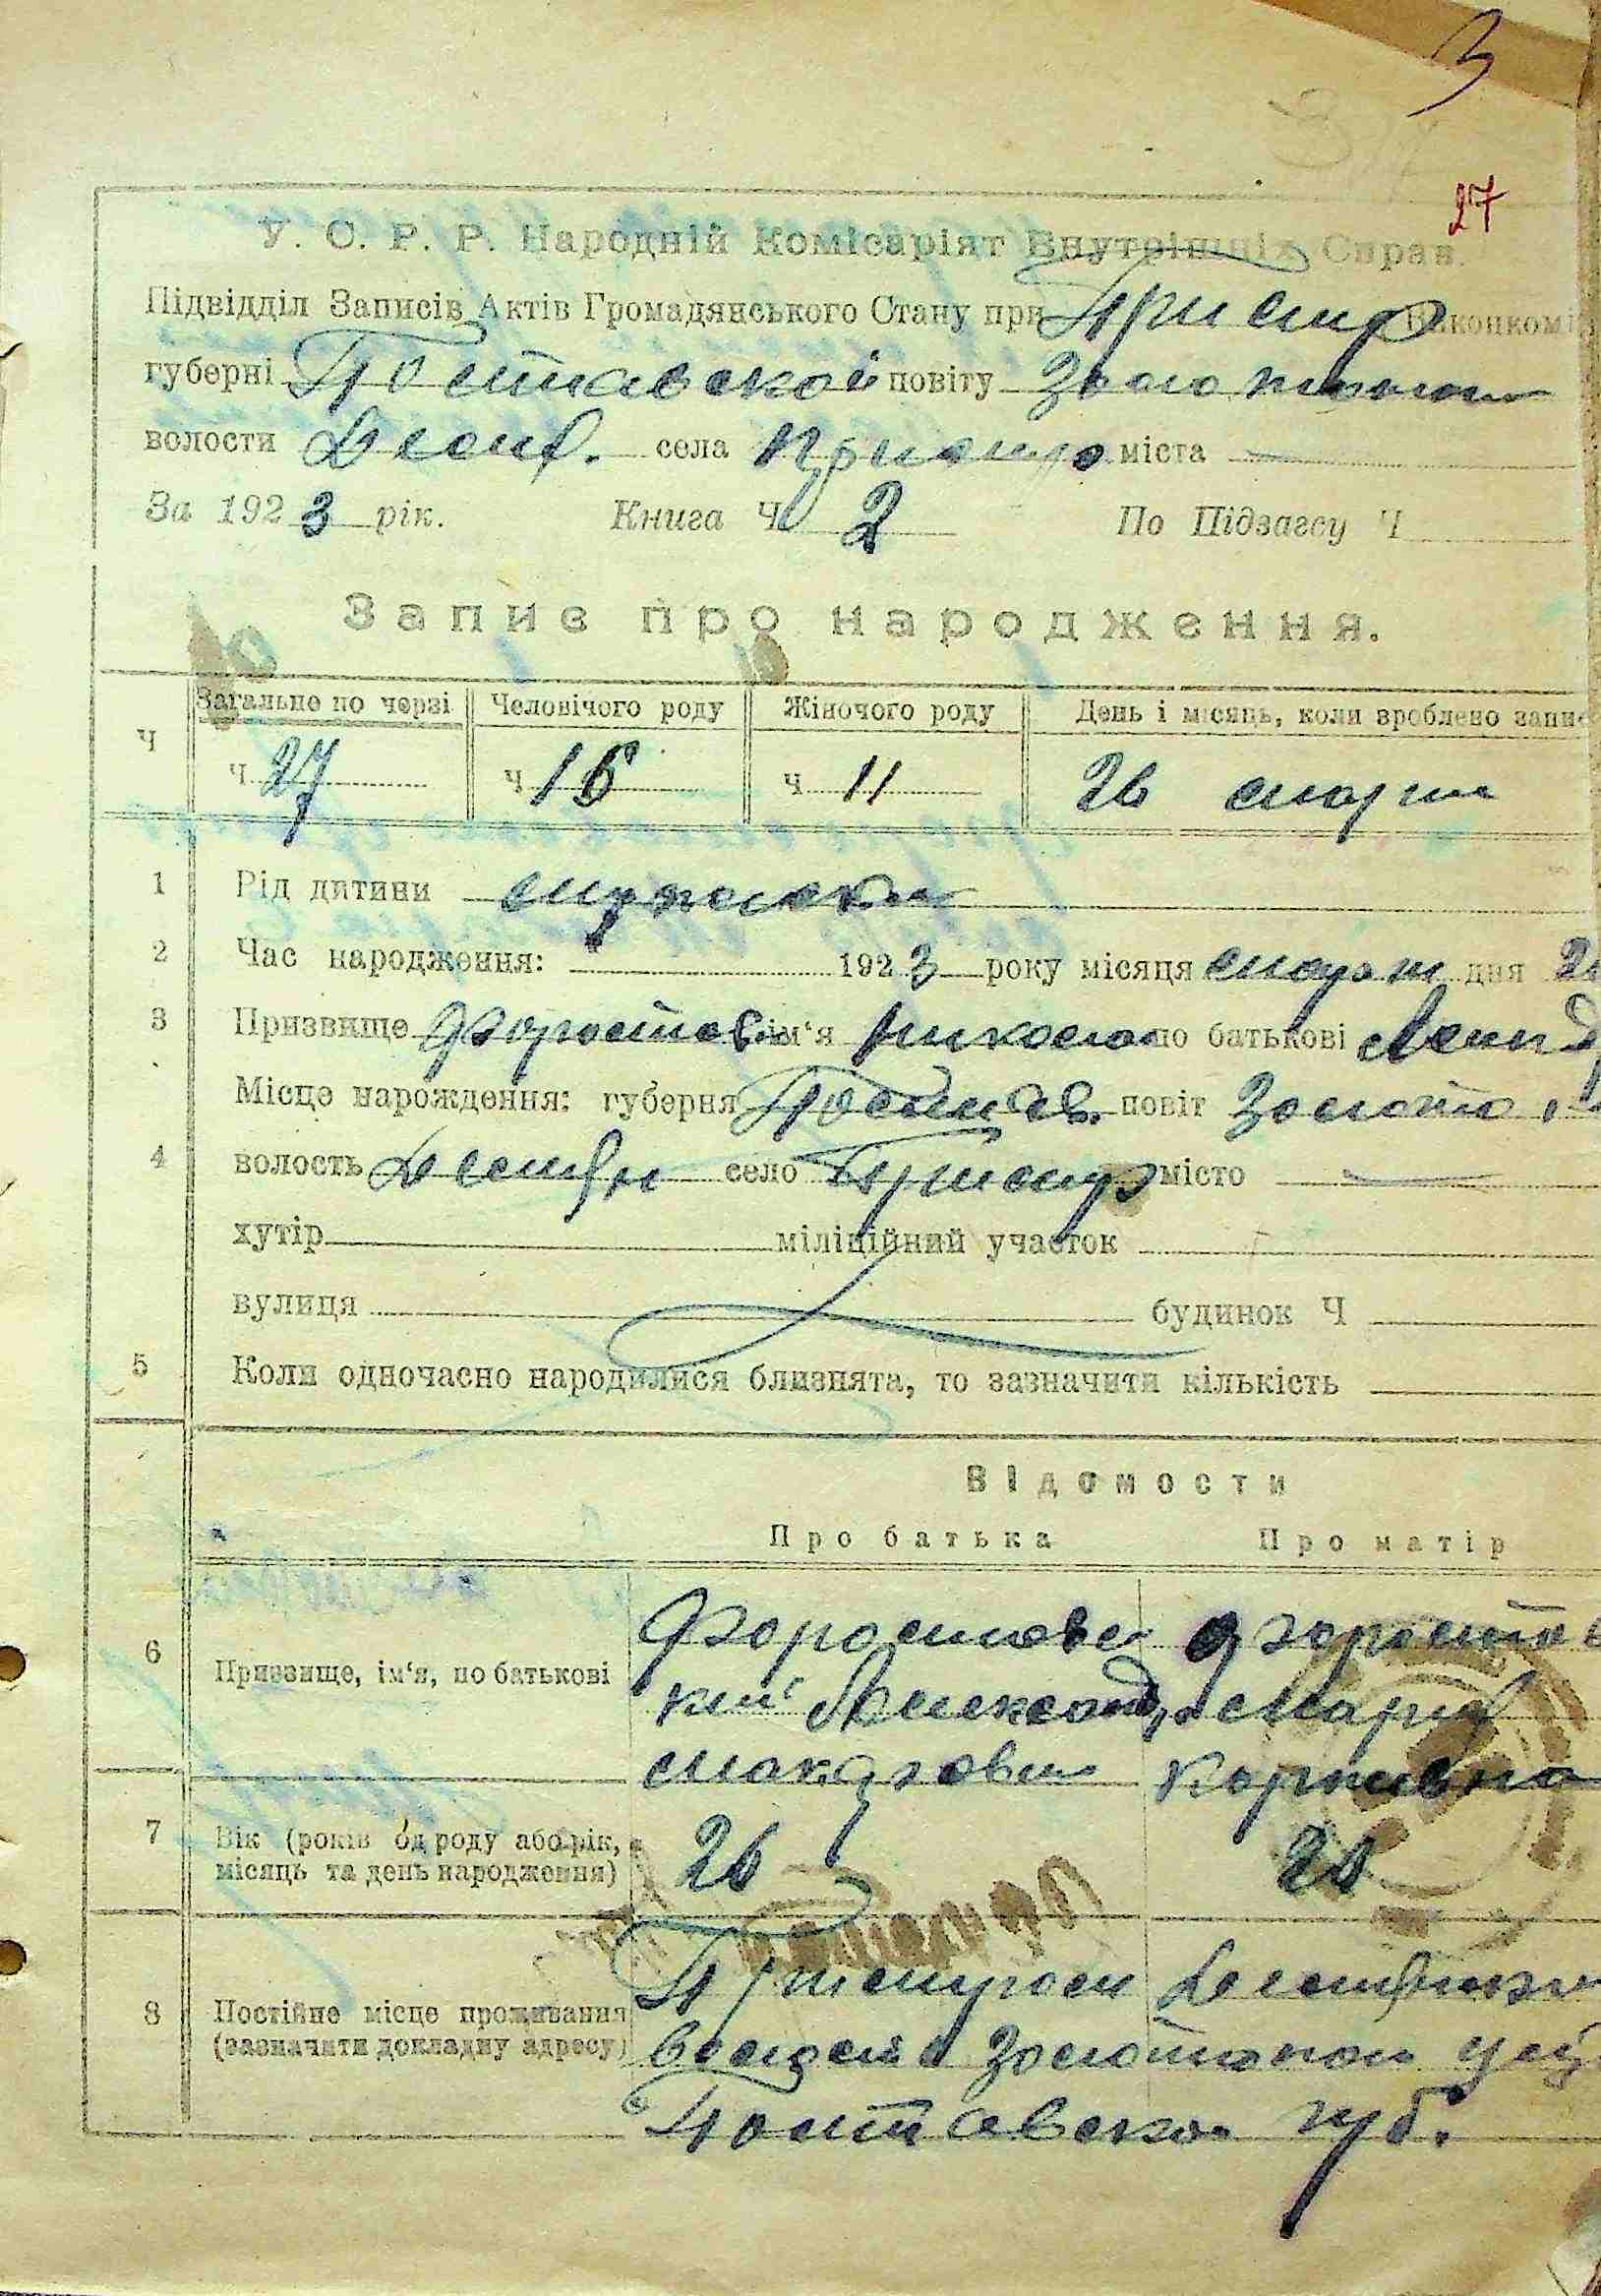 3
27
У. С. Р. Р. Народній Комісаріят Внутрішніх Справ.
Підвідділ Записів Актів Громадянського Стану при Виконкомі
губерні Полтавской повіту Золотонош
волости села міста
За 1923 рік. Книга Ч 2 По Підзагсу Ч
Запис про народження.
Загальне по черзі Человічого роду Жіночого роду День і місяць, коли зроблено запис
Ч ч 27 ч 16 ч 11 26 март
1 Рід дитини мужской
2 Час народження: 1923 року місяця март дня 2
3 Призвище Форостов ім‘я Николай по батькові
Місце нарождення: губерня Полтав. повіт Золото
4 волость село місто
хутір міліційний участок
вулиця будинок Ч
5 Коли одночасно народилися близнята, то зазначити кількість
Відомости
Про батька Про матір
6 Призвище, ім‘я, по батькові
Форостовс Форостов
кий Александр Мария
Макарович Карповна
7 Вік (років од роду або рік, місяць та день народження) 26 20
8 Постійне місце проживання (зазначити докладну адресу)
волости Золотонош уез
Полтавской губ.